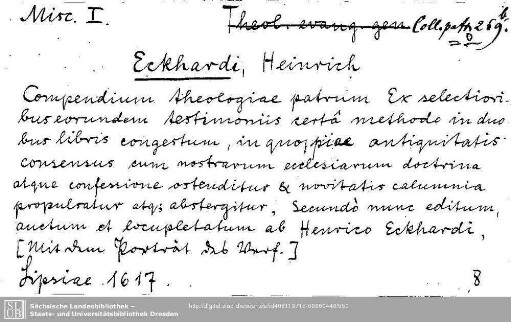 Misc. I. Theol. evang. gen. Coll. patr. 269 b.
Eckhardi, Heinrich
Compendium theologiae patrum Ex selectiori-
bus eorundem testimoniis certâ methodo in duo
bus libris congestum, in quo piae antiquitatis
consensus cum nostrarum ecclesiarum doctrina
atque confessione ostenditur & novitatis calumnia
propulsatur atq; abstergitur, Secundò nunc editum,
auctum et locupletatum ab Henrico Eckhardi,
[Mit dem Porträt des Verf.]
Lipsiae 1617. 8
SLUB
Sächsische Landesbibliothek –
Staats- und Universitätsbibliothek Dresden